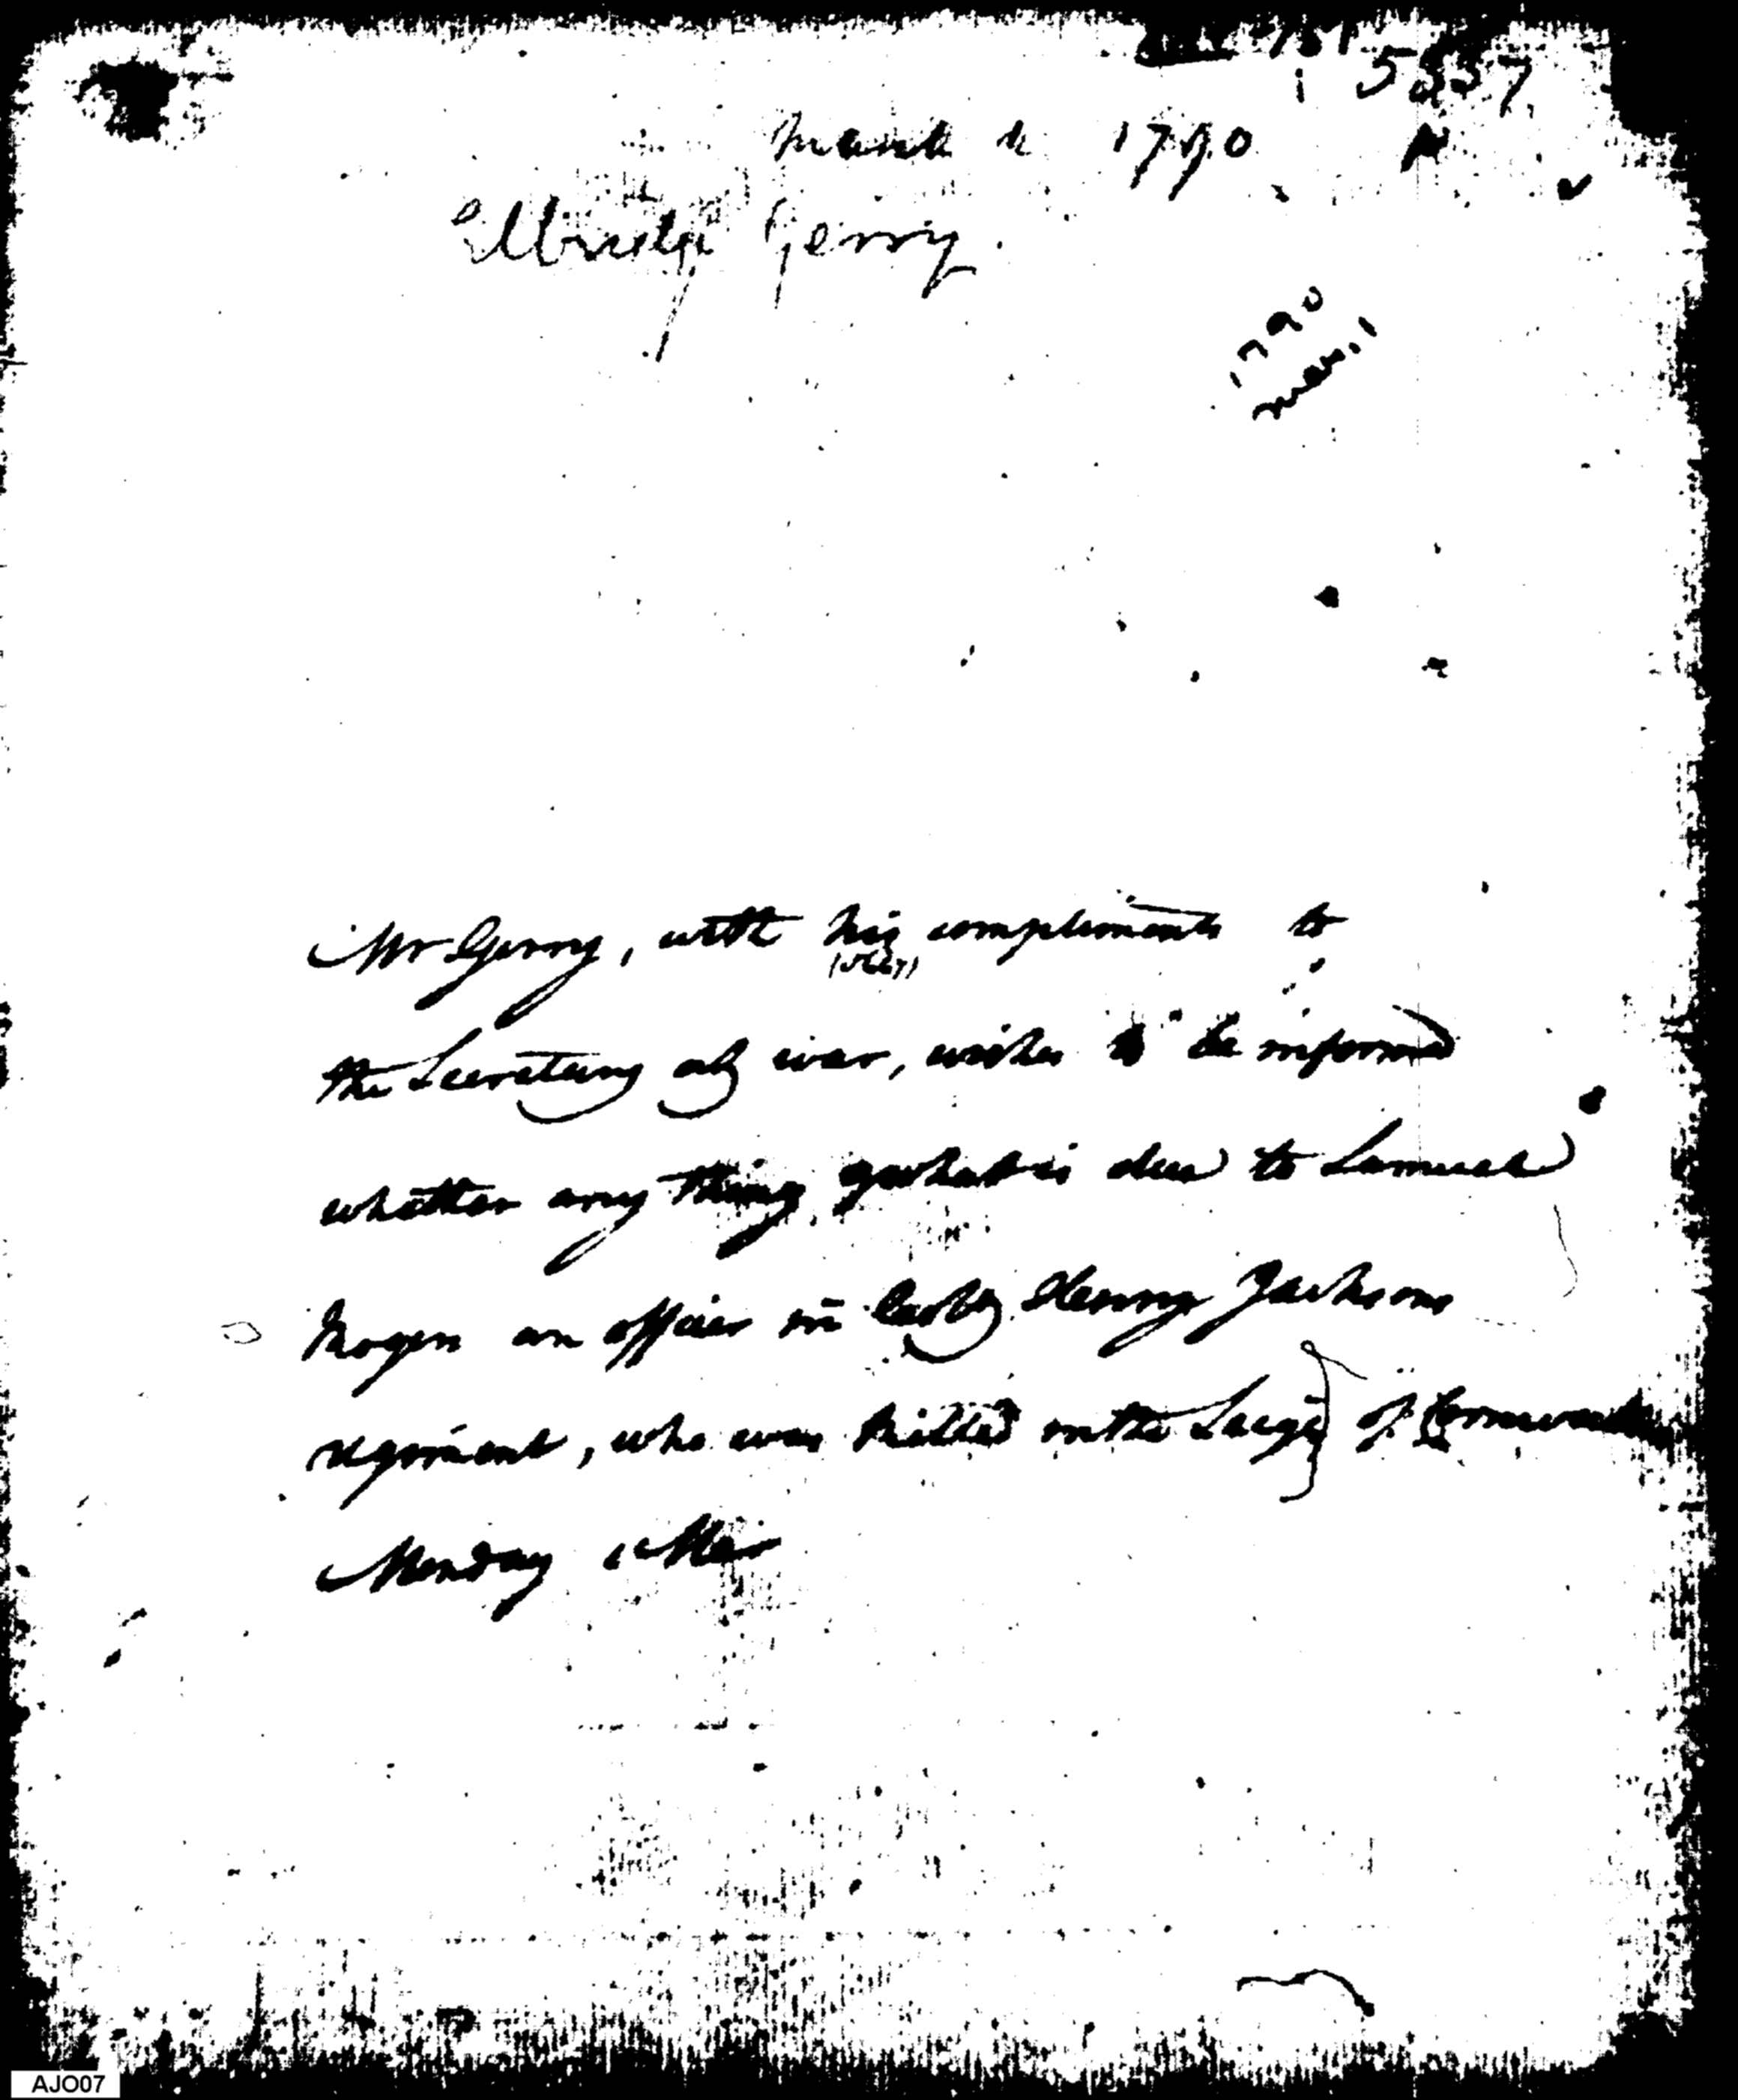 5537
March 1790
Elbridge Gerry.
1790
Mar. 1
Mr Gerry, with his compliments to
the Secretary at war, wishes to be informed
whether any thing, & what is due to Samuel
Rogers an officer in Colo Henry Jacksons
regiment, who was killed in the Seige of Cornwallis
Monday 1 Mar
AJO07